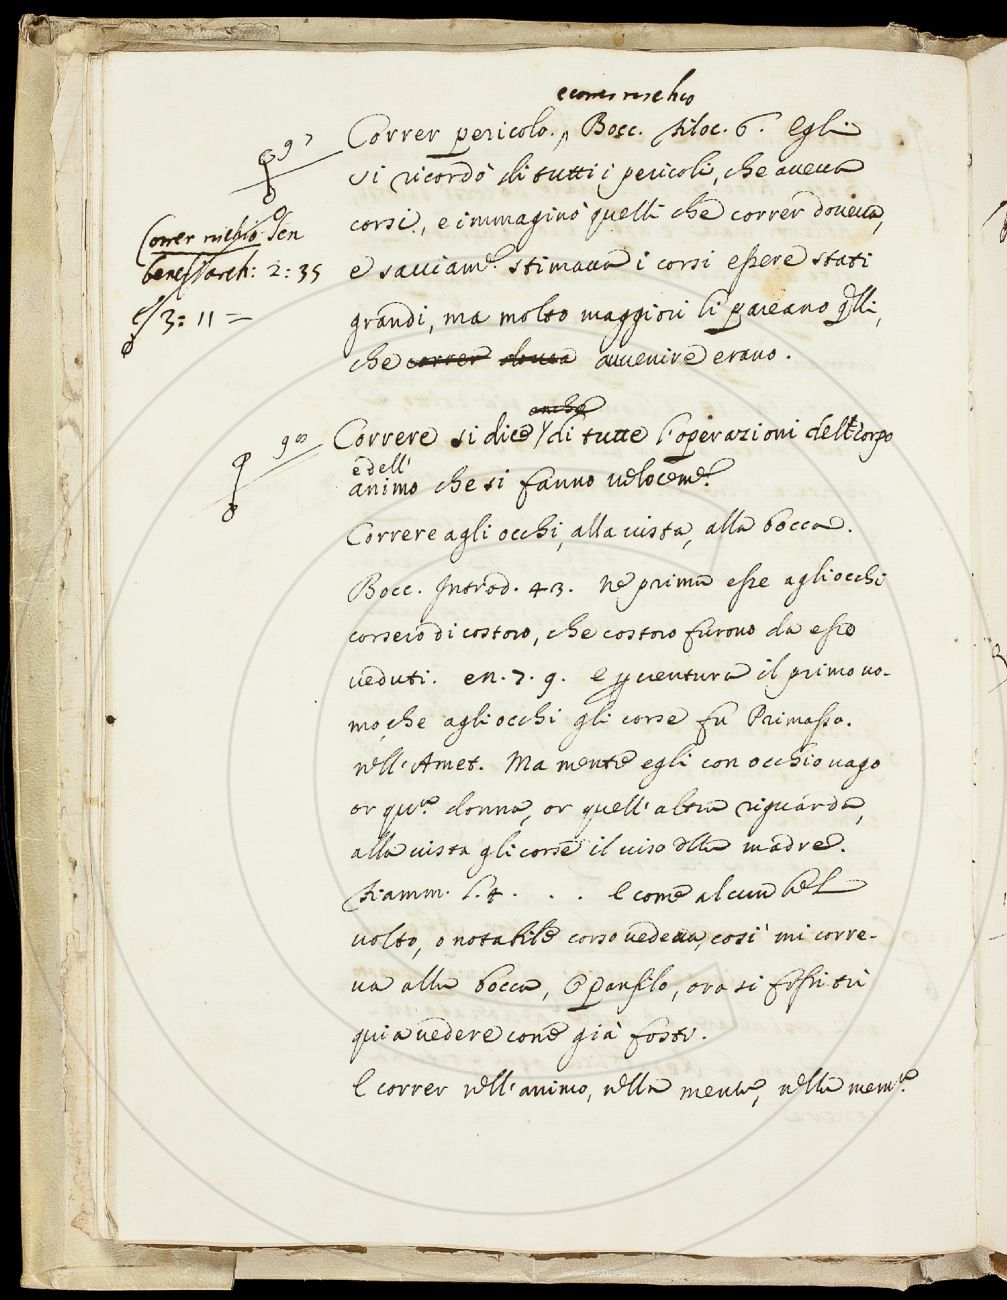 e correr rischio
9 7
Correr pericolo. ^ Bocc. Filoc. 6. Egli
si ricordò di tutti i pericoli, che aveva
corsi, e immaginò quelli che correr doveva,
Correr rischio Sen
ben: Varch: 2: 35
e sacciamᵉ. stimava i corsi essere stati
3: 11 =
grandi, ma molto maggiori li pareano qlli,
che correr dovea avvenire erano.
anche
9
Correre si dice di tutte l'operazioni dell corpo
e dell'
animo che si fanno velocemᵉ.
Correre agli occhi, alla vista, alla bocca.
Bocc. Introd. 43. Ne prima esse agli occhi
corsero di costoro, che costoro furono da esse
veduti. e n. 7. 9. E p ventura il primo uo-
mo, che agli occhi gli corse fu Primasso.
nell'Amet. Ma mentre egli con occhio vago
or quᵗᵃ donna, or quell'altra riguarda,
alla vista gli corse il viso dlla madre.
Fiamm. l. 4 . . . E come alcun bel
volto, o notabile corso vedeva, così mi corre-
va alla bocca, O panfilo, ora si fossi tù
qui a vedere come già fosti.
E correr nell'animo, nella mente, nella memᵃ.